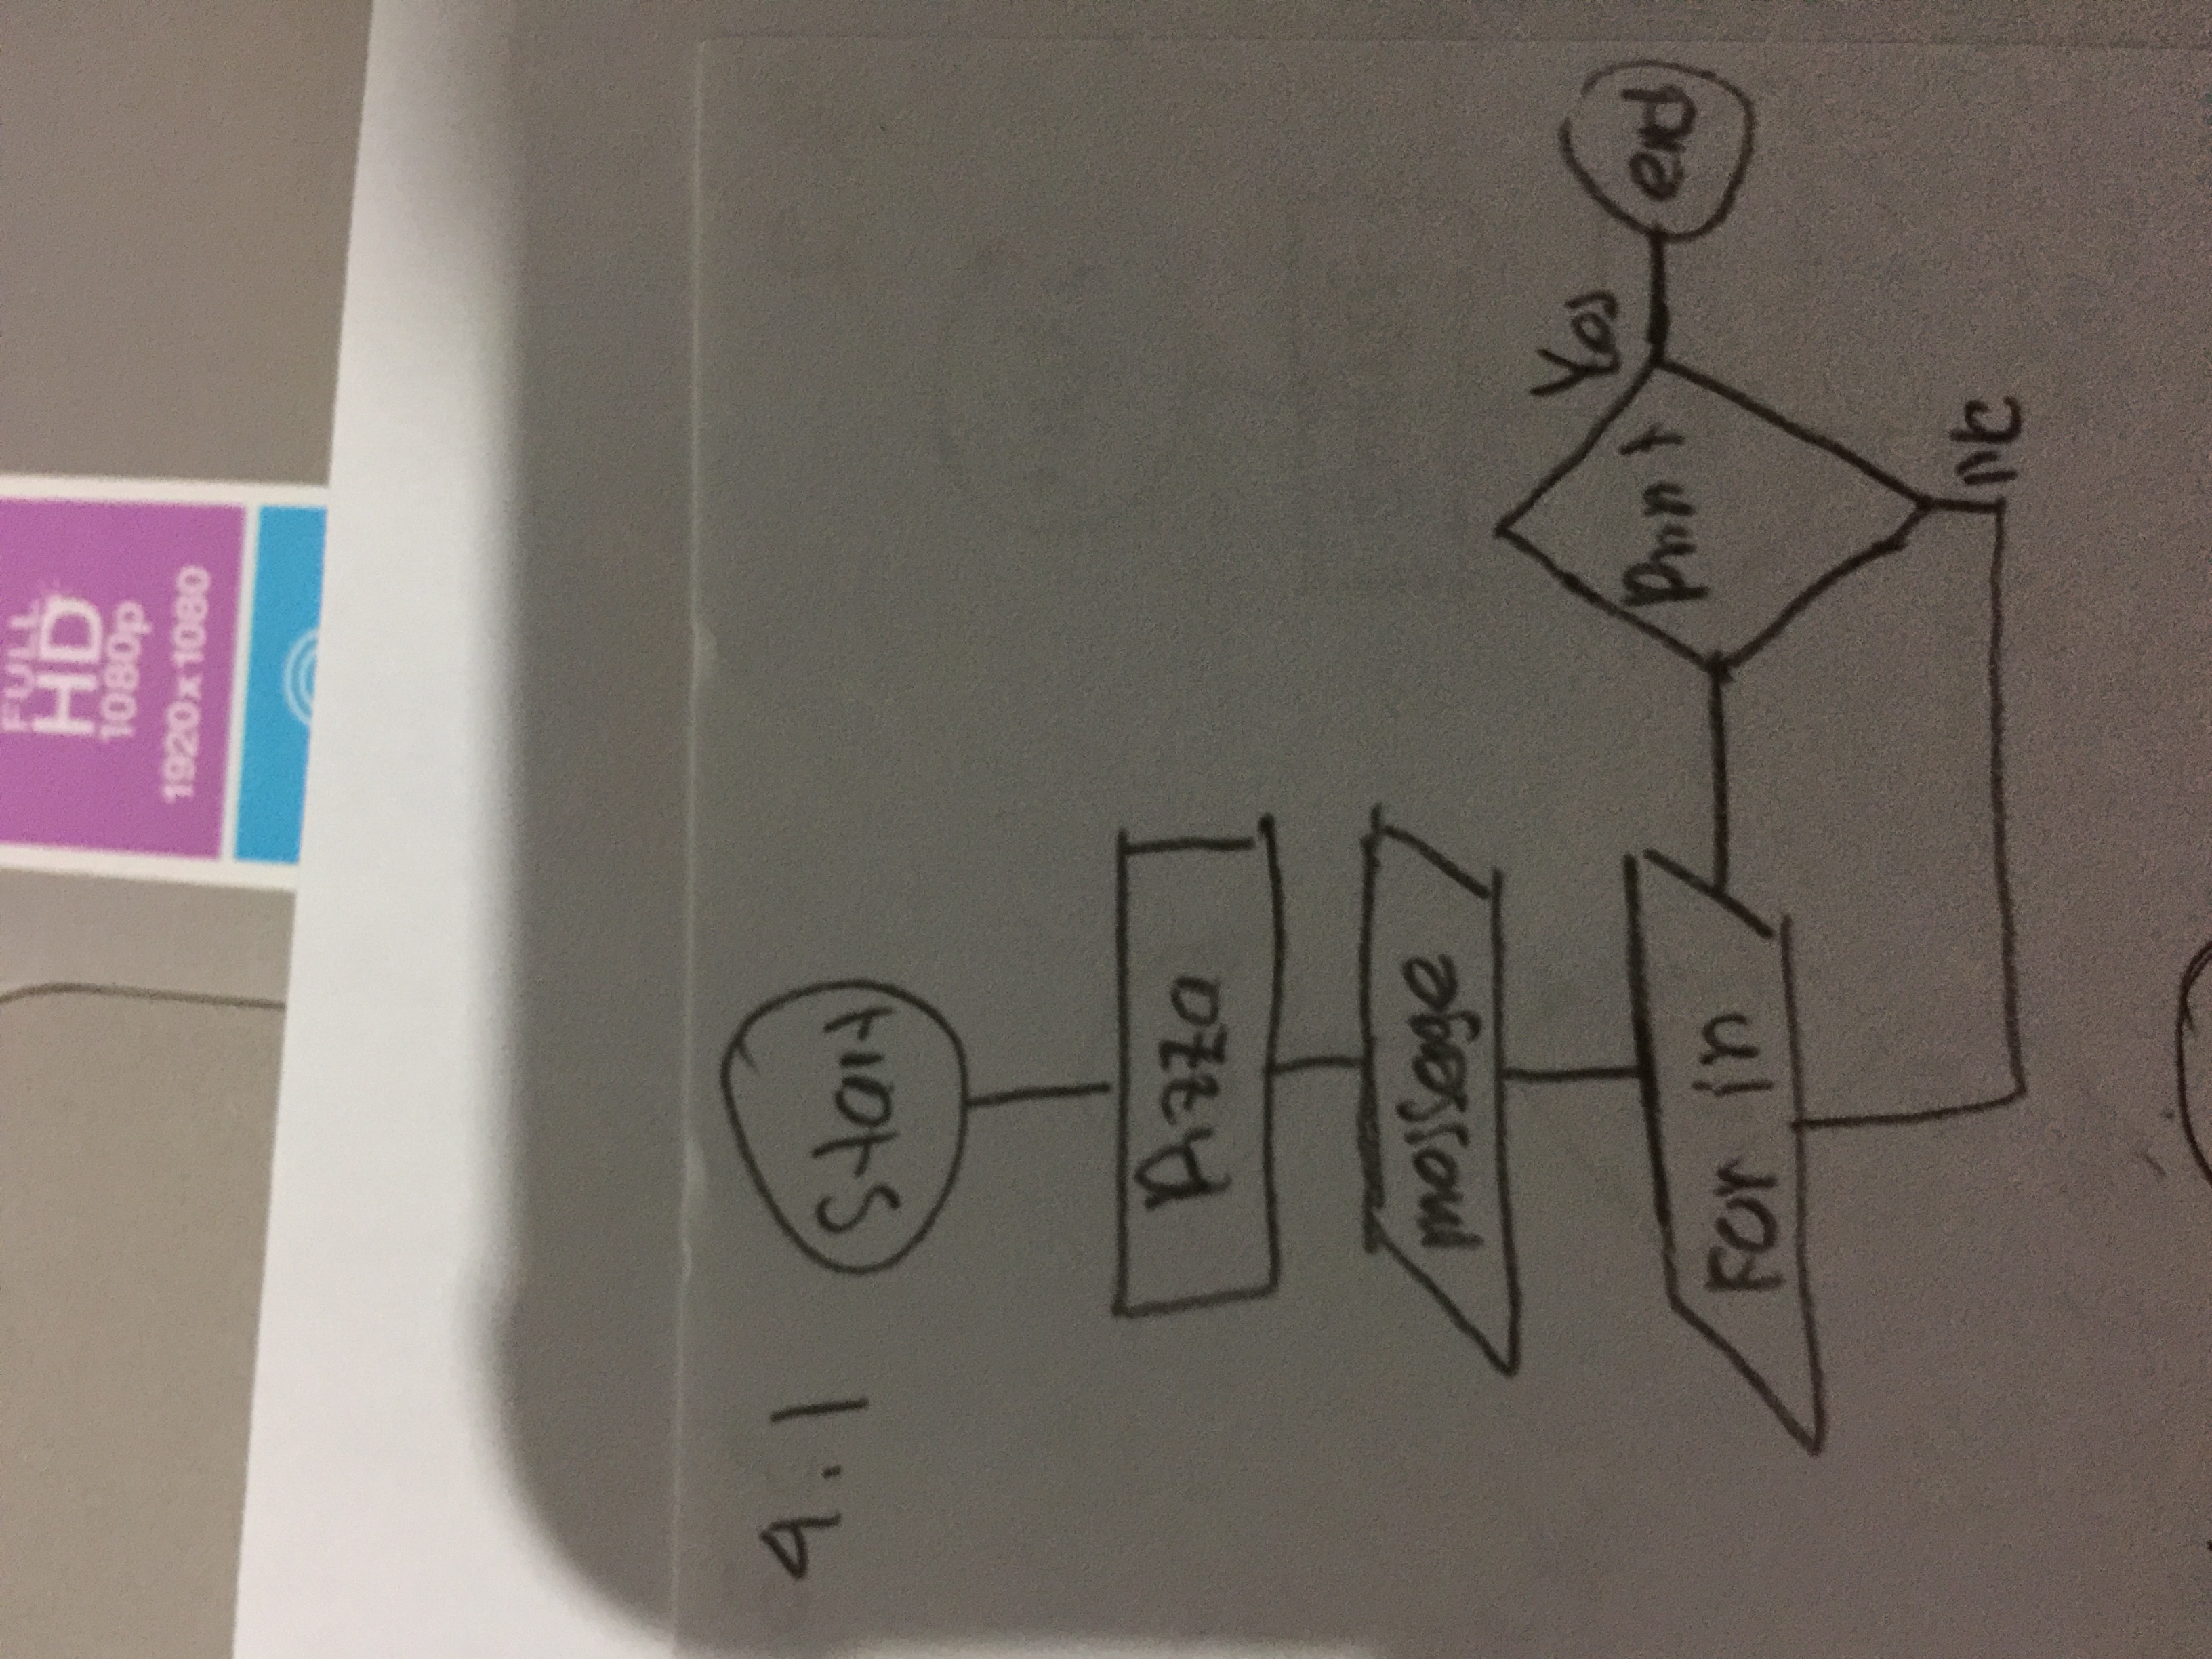 FULL
HD
1080p
1920x1080
4.1
Start
Pizza
message
For in
Print
Yes
end